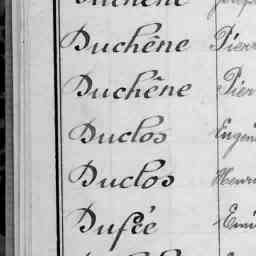 Duchêne
Duchêne Pierr
Duchêne Pierr
Duclos Eugèn
Duclos Henri
Dufée Emi